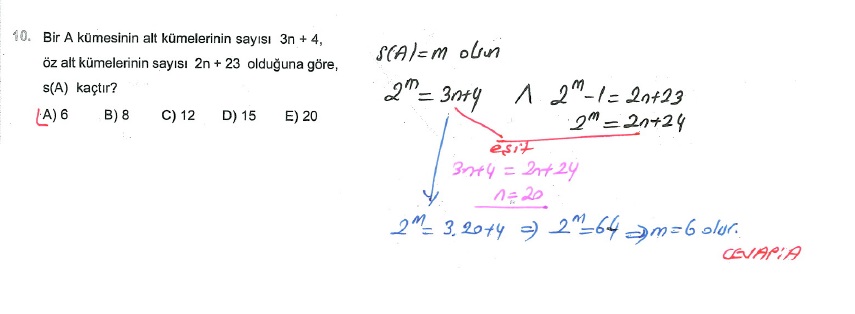 10. Bir A kümesinin alt kümelerinin sayısı 3n + 4,
öz alt kümelerinin sayısı 2n + 23 olduğuna göre,
s(A) kaçtır?
A) 6 B) 8 C) 12 D) 15 E) 20
s(A)=m olsun
2^m = 3n+4 ∧ 2^m-1 = 2n+23
2^m = 2n+24
eşit
3n+4 = 2n+24
n = 20
2^m = 3.20+4 ⇒ 2^m=64 ⇒ m=6 olur.
CEVAP:A